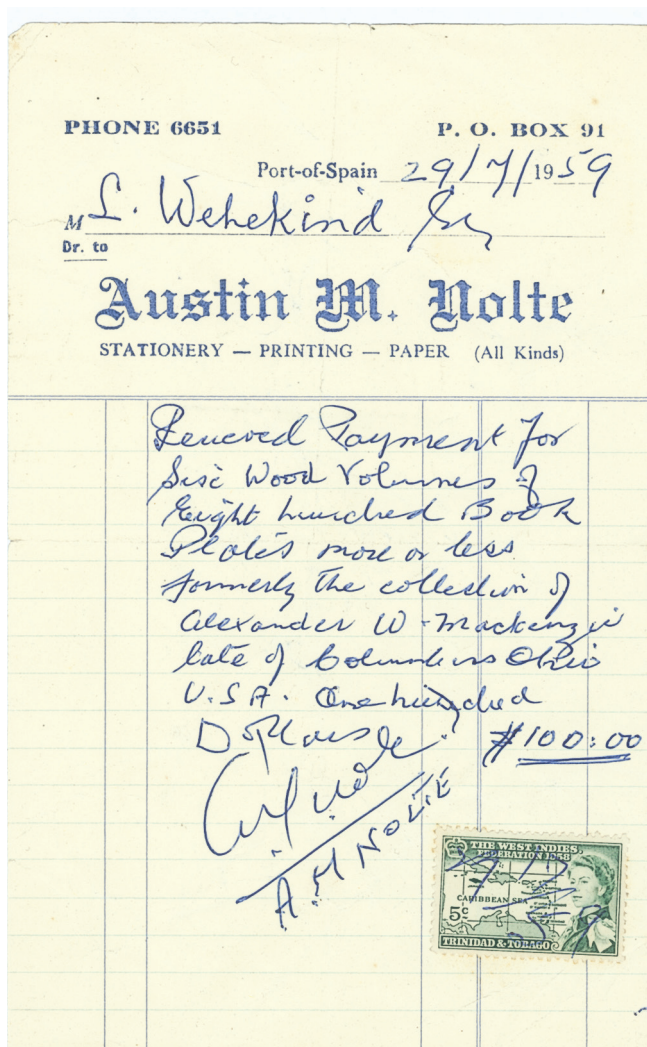 PHONE 6651 P. O. BOX 91
Port-of-Spain 29/7/1959
M L. Wehekind Esq
Dr. to
Austin M. Nolte
STATIONERY — PRINTING — PAPER (All Kinds)
Received Payment for
Wood Volumes of
Eight hundred Book
Plates more or less
formerly the collection of
Alexander W. Mackenzie
late of Columbus Ohio
U.S.A. One hundred
Dollars $100:00
A M NOLTE
THE WEST INDIES
FEDERATION 1958
CARIBBEAN SEA
5c
TRINIDAD & TOBAGO